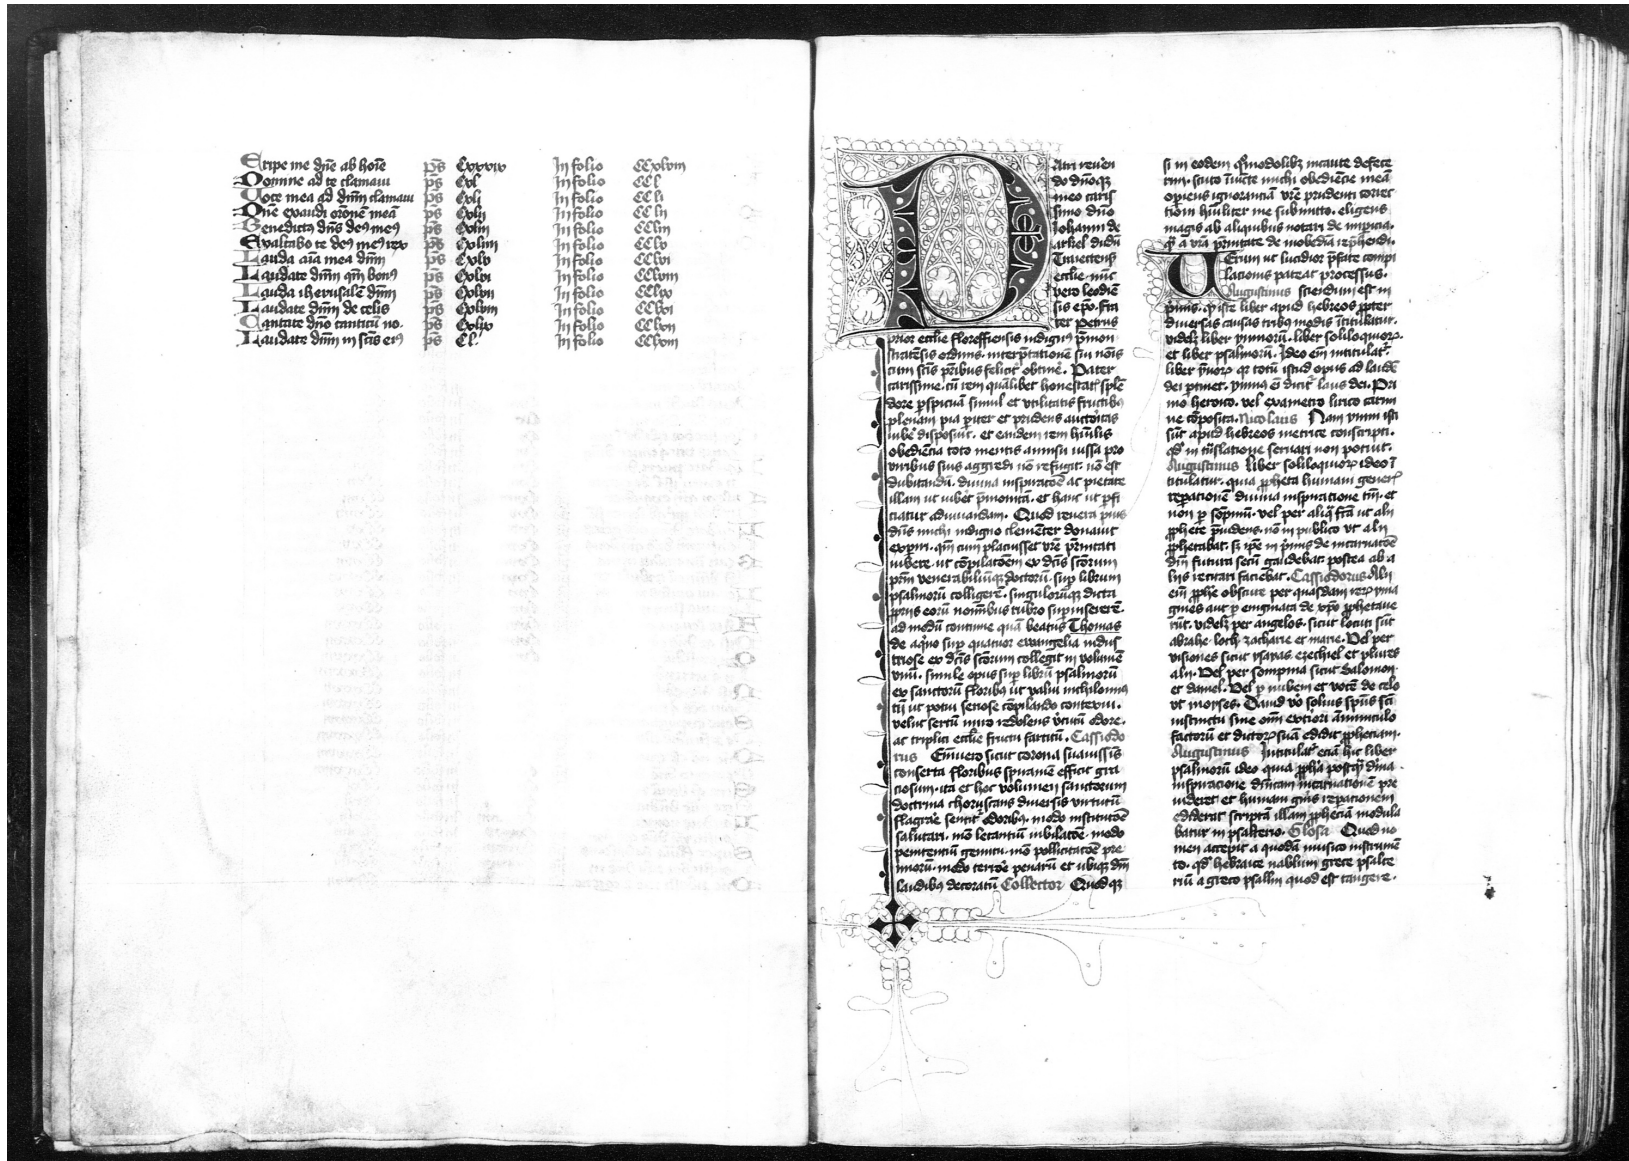 Eripe me dn̄e ab hoīe p̄s Cxxxix In folio CCxlviii
Domine ad te clamaui p̄s Cxl In folio CC l
Voce mea ad dn̄m clamaui p̄s Cxlj In folio CC li
Dn̄e exaudi orōnem meā p̄s Cxlij In folio CC lii
Benedictꝰ dn̄s deꝰ meꝰ p̄s Cxliii In folio CCliii
Exaltabo te deꝰ meꝰ rex p̄s Cxliiii In folio CClv
Lauda aīa mea dn̄m p̄s Cxlv In folio CClvi
Laudate dn̄m qm̄ bonꝰ p̄s Cxlvi In folio CClviii
Lauda iherusalē dn̄m p̄s Cxlvii In folio CClix
Laudate dn̄m de celis p̄s Cxlviii In folio
Cantate dn̄o canticū no. p̄s Cxlix In folio
Laudate dn̄m in scīs eiꝰ p̄s CL. In folio
Patri reuēn
do dn̄oqꝫ
meo caris
simo dn̄o
Iohanni de
arkel dudū
Traiectens̄
ecclīe nūc
vero leodiē
sis ep̄o. fra
ter Petrus
prior ecclīe floreffiensis indignꝰ p̄mon
stratēsis ordinis. interp̄tationē sui nōis
cum scīs pr̄ibus felicit̄ obtinē. Pater
carissime. cū rem quālibet honestat̄ splē
dore p̄spicuā simul et vtilitatis fructibꝰ
plenam pia pr̄iter et prudens auctōitas
iubē disposuit. et eandem rem hūilis
obediēcia toto mentis annisu iussa pro
viribus suis aggredi nō refugit. nō est
dubitandū. diuina inspiracōe ac pietate
illam ut iubēt p̄monitā. et hanc ut p̄fi
ciatur adiuuandam. Quod reuera pius
dn̄s michi indigno clemēter donauit
exp̄iri. qm̄ cum placuisset vr̄e p̄rnitati
iubere. ut cōpilacōem ex dc̄is scōrum
pr̄m venerabiliūqꝫ doctorū. sup̄ librum
psalmorū colligerē. singulorūqꝫ dicta
eorū nominibus rubro sup̄insererē.
ad modū continue quā beatus Thomas
de aqⁱno sup̄ quatuor ewangelia indus
triose ex dc̄is scōrum collegit in volumē
vnū. simile opus sup̄ librū psalmorū
ex sanctorū floribus ut valui nichilominꝰ
tū ut potui seriose cōpilando contexui.
velut sertū miro redolens odore.
ac triplici ecclīe fructu fartitū. Cassiodo
rus Enimuero sicut corona suauissīs
conserta floribus spiramē efficit gra
ciosum. ita et hoc volumen sanctorum
doctrina choruscans diuersis virtutū
flagrāe sentit̄ odoribꝰ. modo institucōe
salutari. mō letantiū iubilacōe. modo
penitentiū gemitu. mō pollicitacōe pre
miorū. modo terrōe penarū et ubiqꝫ dīn
laudibꝰ decoratū Collector Quodqꝫ
si in eodem qⁱmodolibꝫ incaute defece
rim. scuto īiūcte michi obediēcie meā
opiens ignorantiā vr̄e prudenti correc
tioni hūiliter me submitto. eligens
magis ab aliquibus notari de inpicia.
qᵃ a vr̄a p̄rnitate de inobediā rep̄hendi.
Verum ut lucidior p̄fate compi
lacionis pateat processus.
Augustinus sciendum est in
p̄mis. qͥ iste liber apud hebreos p̄pter
diuersas causas tribꝰ modis ītitulatur.
videlꝫ liber ymnorū. liber soliloquiorꝫ.
et liber psalmorū. Ideo eīm intitulat̄
liber ymnorꝫ qꝛ totū istud opus ad laudē
dei p̄tinet. ymnus eīm dicit̄ laus dei. Pri
mo heroico. vel exametro lirico carmi
ne cōposita. Nicolaus Nam ymni isti
sūt apud hebreos metrice conscripti.
qd̄ in trāslatione seruari non potuit.
Augustinus liber soliloquiorꝫ ideo ī
titulatur. quia ꝓpheta humani generꝭ
reparationē diuina inspiracione tm̄. et
non p̄ sōpniū. vel per aliqᵃ fc̄a ut alij
ꝓphete p̄uidens. nō in publico ut alij
ꝓphetabāt. sꝫ ip̄e in p̄mis de incarnacōe
dīni futura secū gaudebat. postea ab a
liis recitari faciebat. Cassiodorus Alij
eīm ꝓphe obscure per quasdam rerꝫ yma
gines aut p̄ enigmata de xp̄o ꝓphetaue
rūt. videlꝫ per angelos. sicut locuti sūt
abrahe. loth. zacharie et marie. Vel per
visiones sicut ysayas. ezechiel et plures
alij. Vel per sompnia sicut salomon
et daniel. Vel p̄ nubem et vocē de celo
vt moyses. Dauid v̊o solius sp̄us sc̄i
instinctu sine om̄i ext̄iori amminiculo
factorū et dictorꝫ suā edidit ꝓpheciam.
Augustinus Intitulat̄ eciā hic liber
psalmorū ideo quia ꝓpha postqᵃ diuina
inspiracione dn̄icam incarnacionē pre
uideret et humani gn̄is reparacionem
ediderat scriptā illam ꝓpheciā modula
batur in psalterio. Glosa Quod no
men accepit a quodā musico instrumē
to. qd̄ hebraice nablum grece psalte
riū a greco psallin quod est tangere.